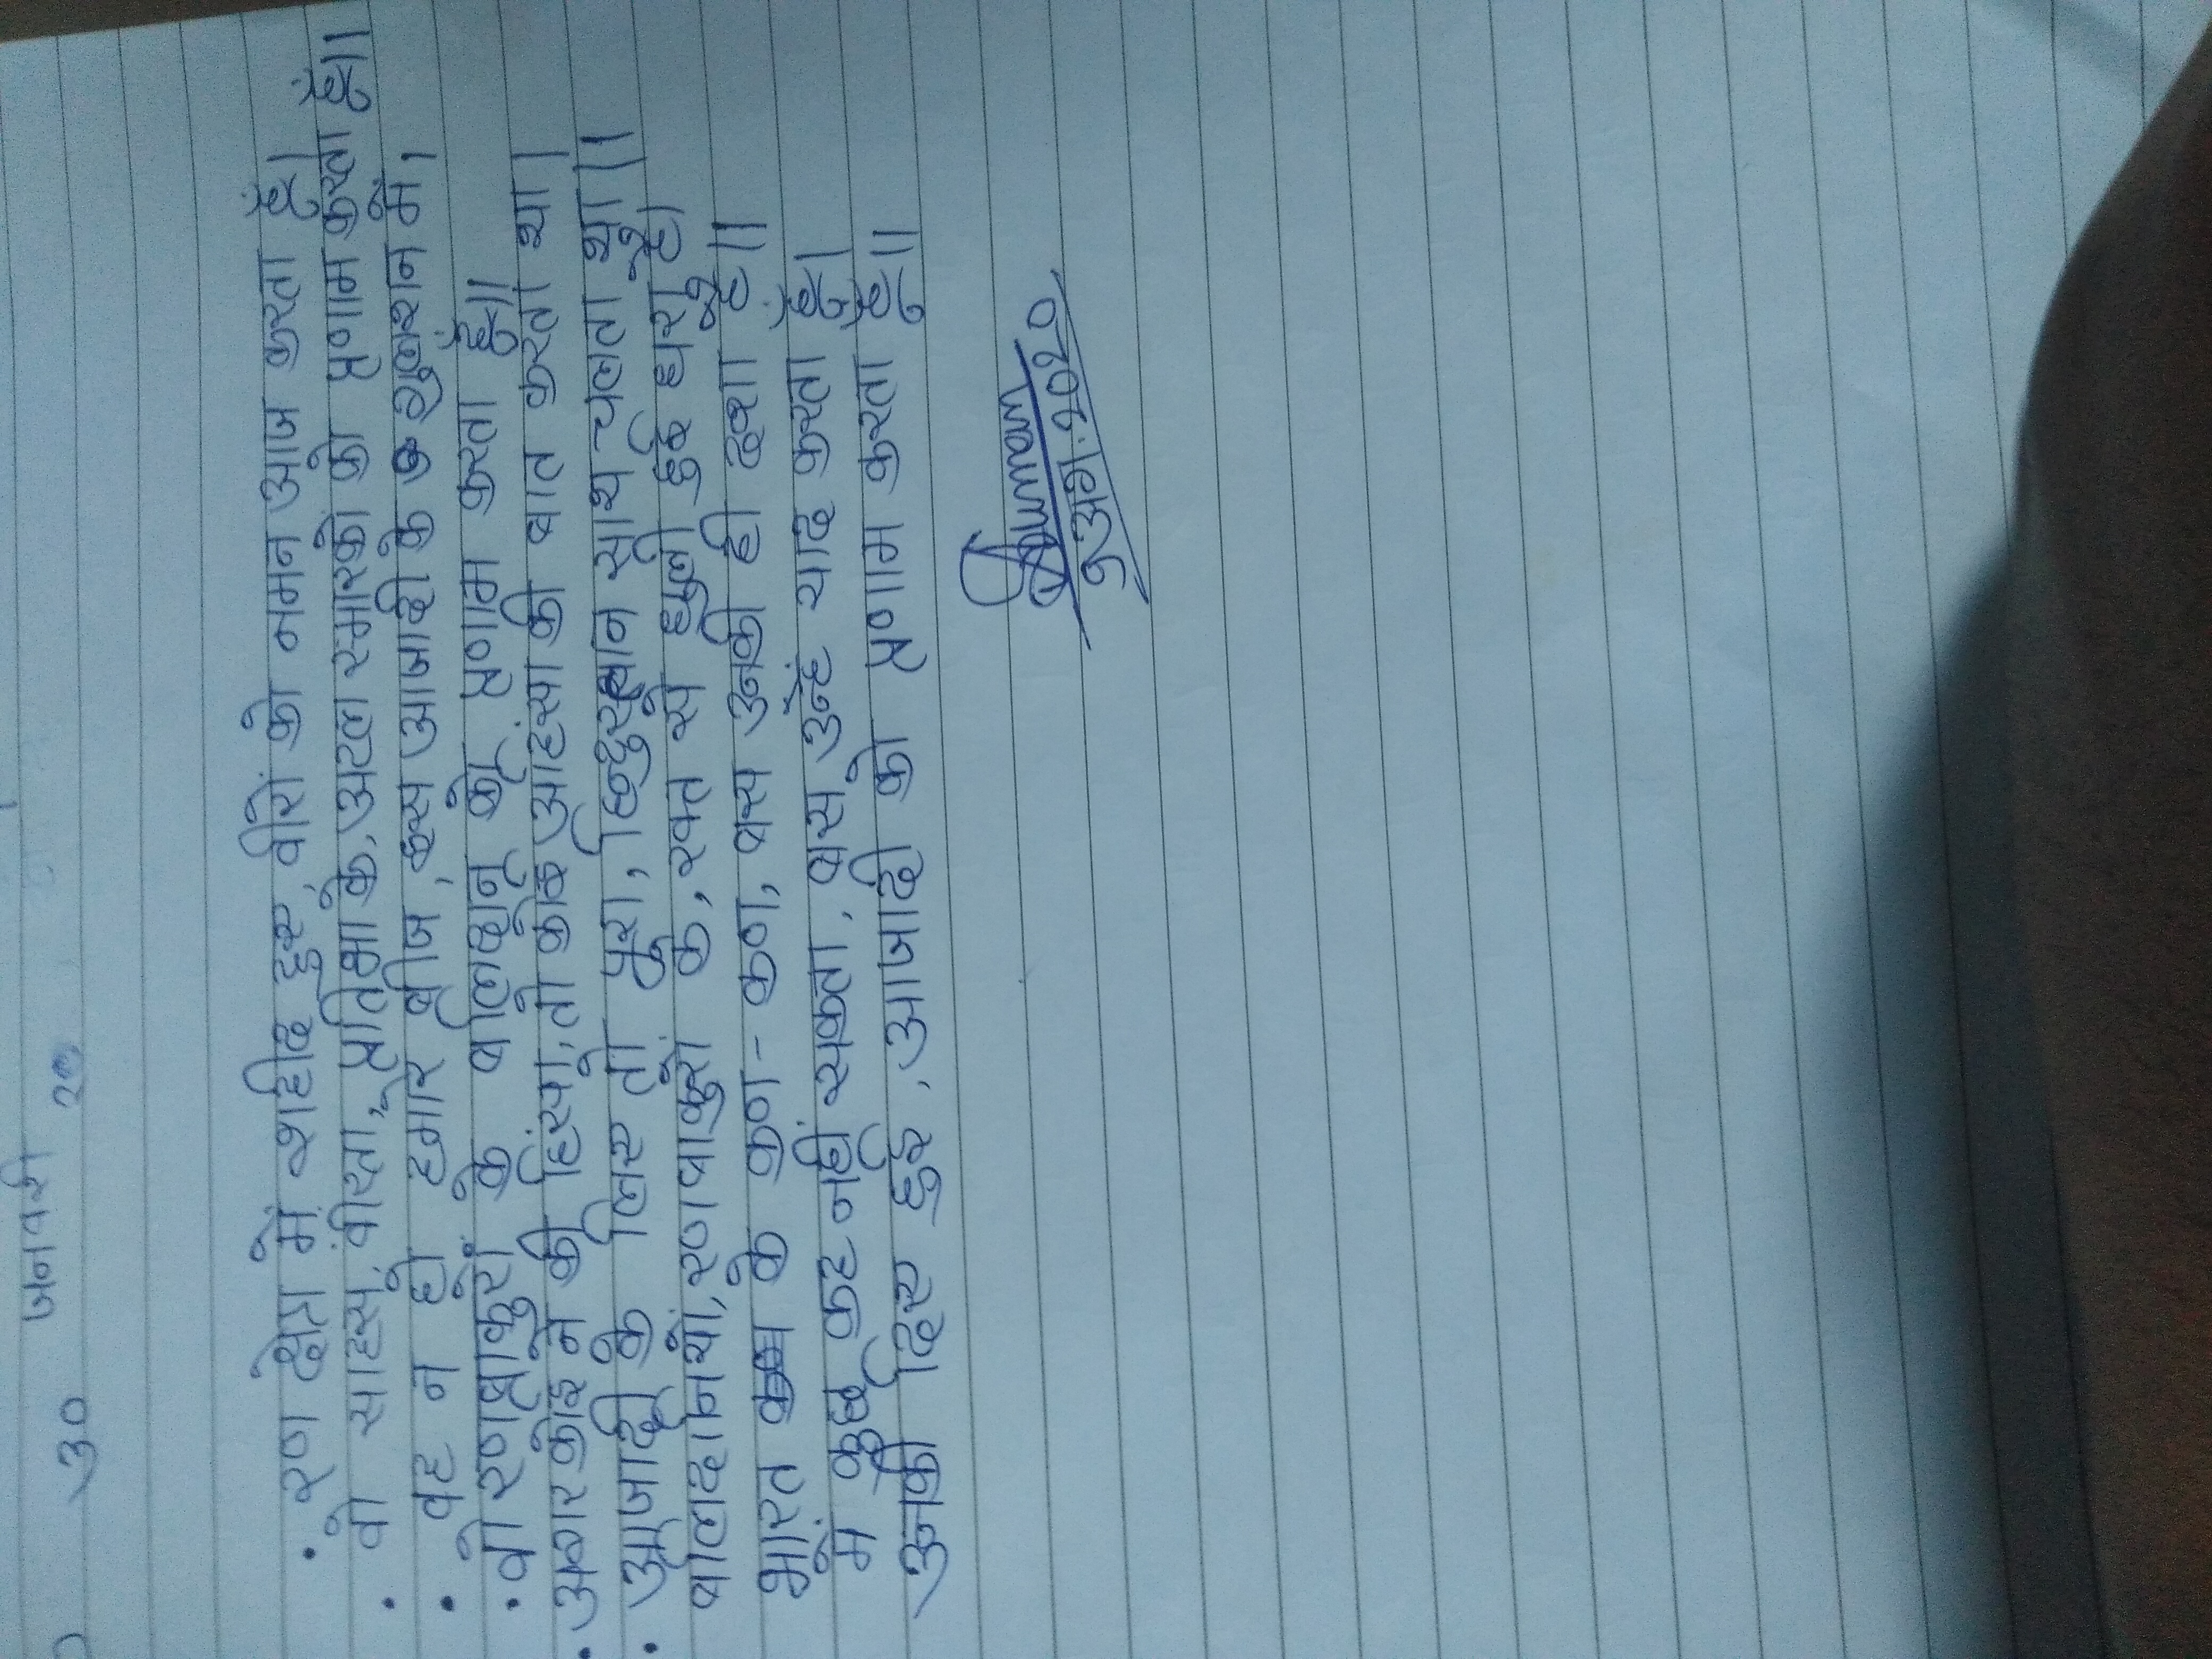 जनवरी
30 20
• रण क्षेत्र में शहीद हुए, वीरों को नमन आज करता हूँ।
• वो साहस, वीरता, प्रतिभा के, अटल स्मारको को प्रणाम करता हूँ।।
• वह न हो हमारे बीज, इस आजादी के गुलशन में।
• वो रणबाकुरों के बलिदान को प्रणाम करता हूँ।।
• अगर कोई न की हिंसा, तो कोई अहिंसा की बात करता था।
• आजादी के लिए तो पूरा, हिन्दुस्तान साथ चलता था।।
बलिदानियों, रणबाकुरों के, रक्त से धुली हुई धरा है।
भारत के कण - कण, बस उनकी ही दशा है।।
में कुछ कह नहीं सकता, बस उन्हें याद करता हूँ।
उनकी दिए हुई, आजादी को प्रणाम करता हूँ।।
9 अग. 2020